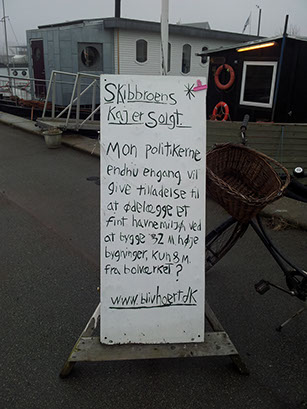 Skibbroens
Kaj er Solgt.
Mon politikerne
endnu engang vil
give tilladelse til
at ødelægge et
fint havnemiljø ved
at bygge 32 m høje
bygninger, kun 8 m.
fra bolværket?
www.blivhoert.dk